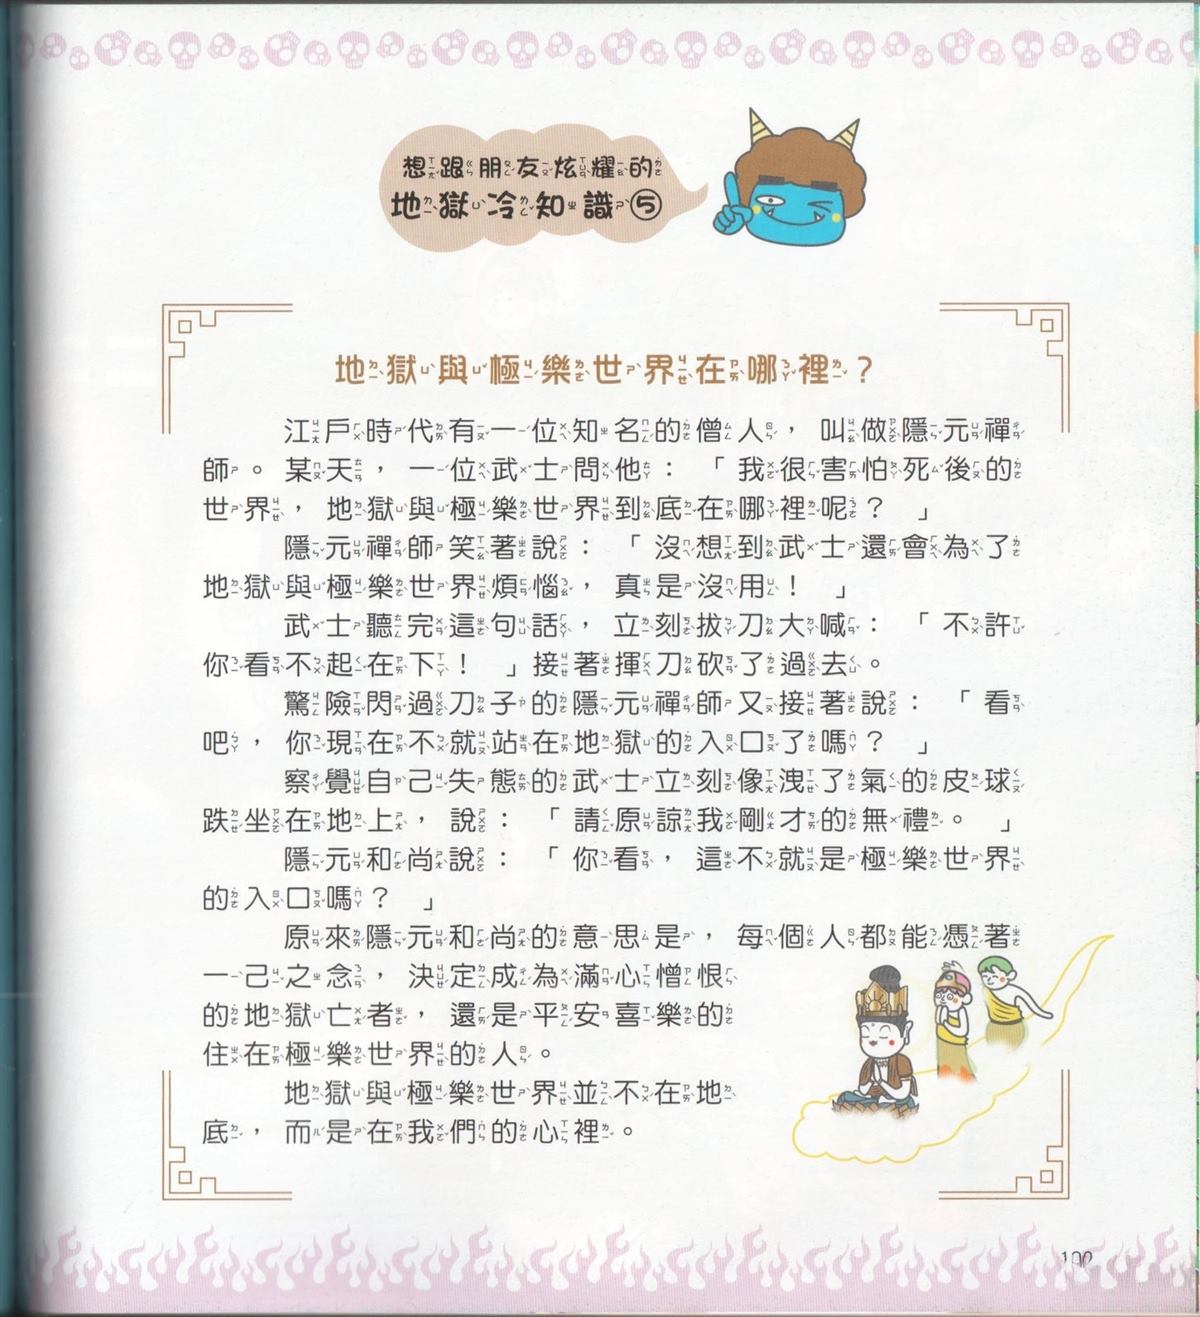 想跟朋友炫耀的
地獄冷知識⑤
地獄與極樂世界在哪裡？
江戶時代有一位知名的僧人，叫做隱元禪
師。某天，一位武士問他：「我很害怕死後的
世界，地獄與極樂世界到底在哪裡呢？」
隱元禪師笑著說：「沒想到武士還會為了
地獄與極樂世界煩惱，真是沒用！」
武士聽完這句話，立刻拔刀大喊：「不許
你看不起在下！」接著揮刀砍了過去。
驚險閃過刀子的隱元禪師又接著說：「看
吧，你現在不就站在地獄的入口了嗎？」
察覺自己失態的武士立刻像洩了氣的皮球
跌坐在地上，說：「請原諒我剛才的無禮。」
隱元和尚說：「你看，這不就是極樂世界
的入口嗎？」
原來隱元和尚的意思是，每個人都能憑著
一己之念，決定成為滿心憎恨
的地獄亡者，還是平安喜樂的
住在極樂世界的人。
地獄與極樂世界並不在地
底，而是在我們的心裡。